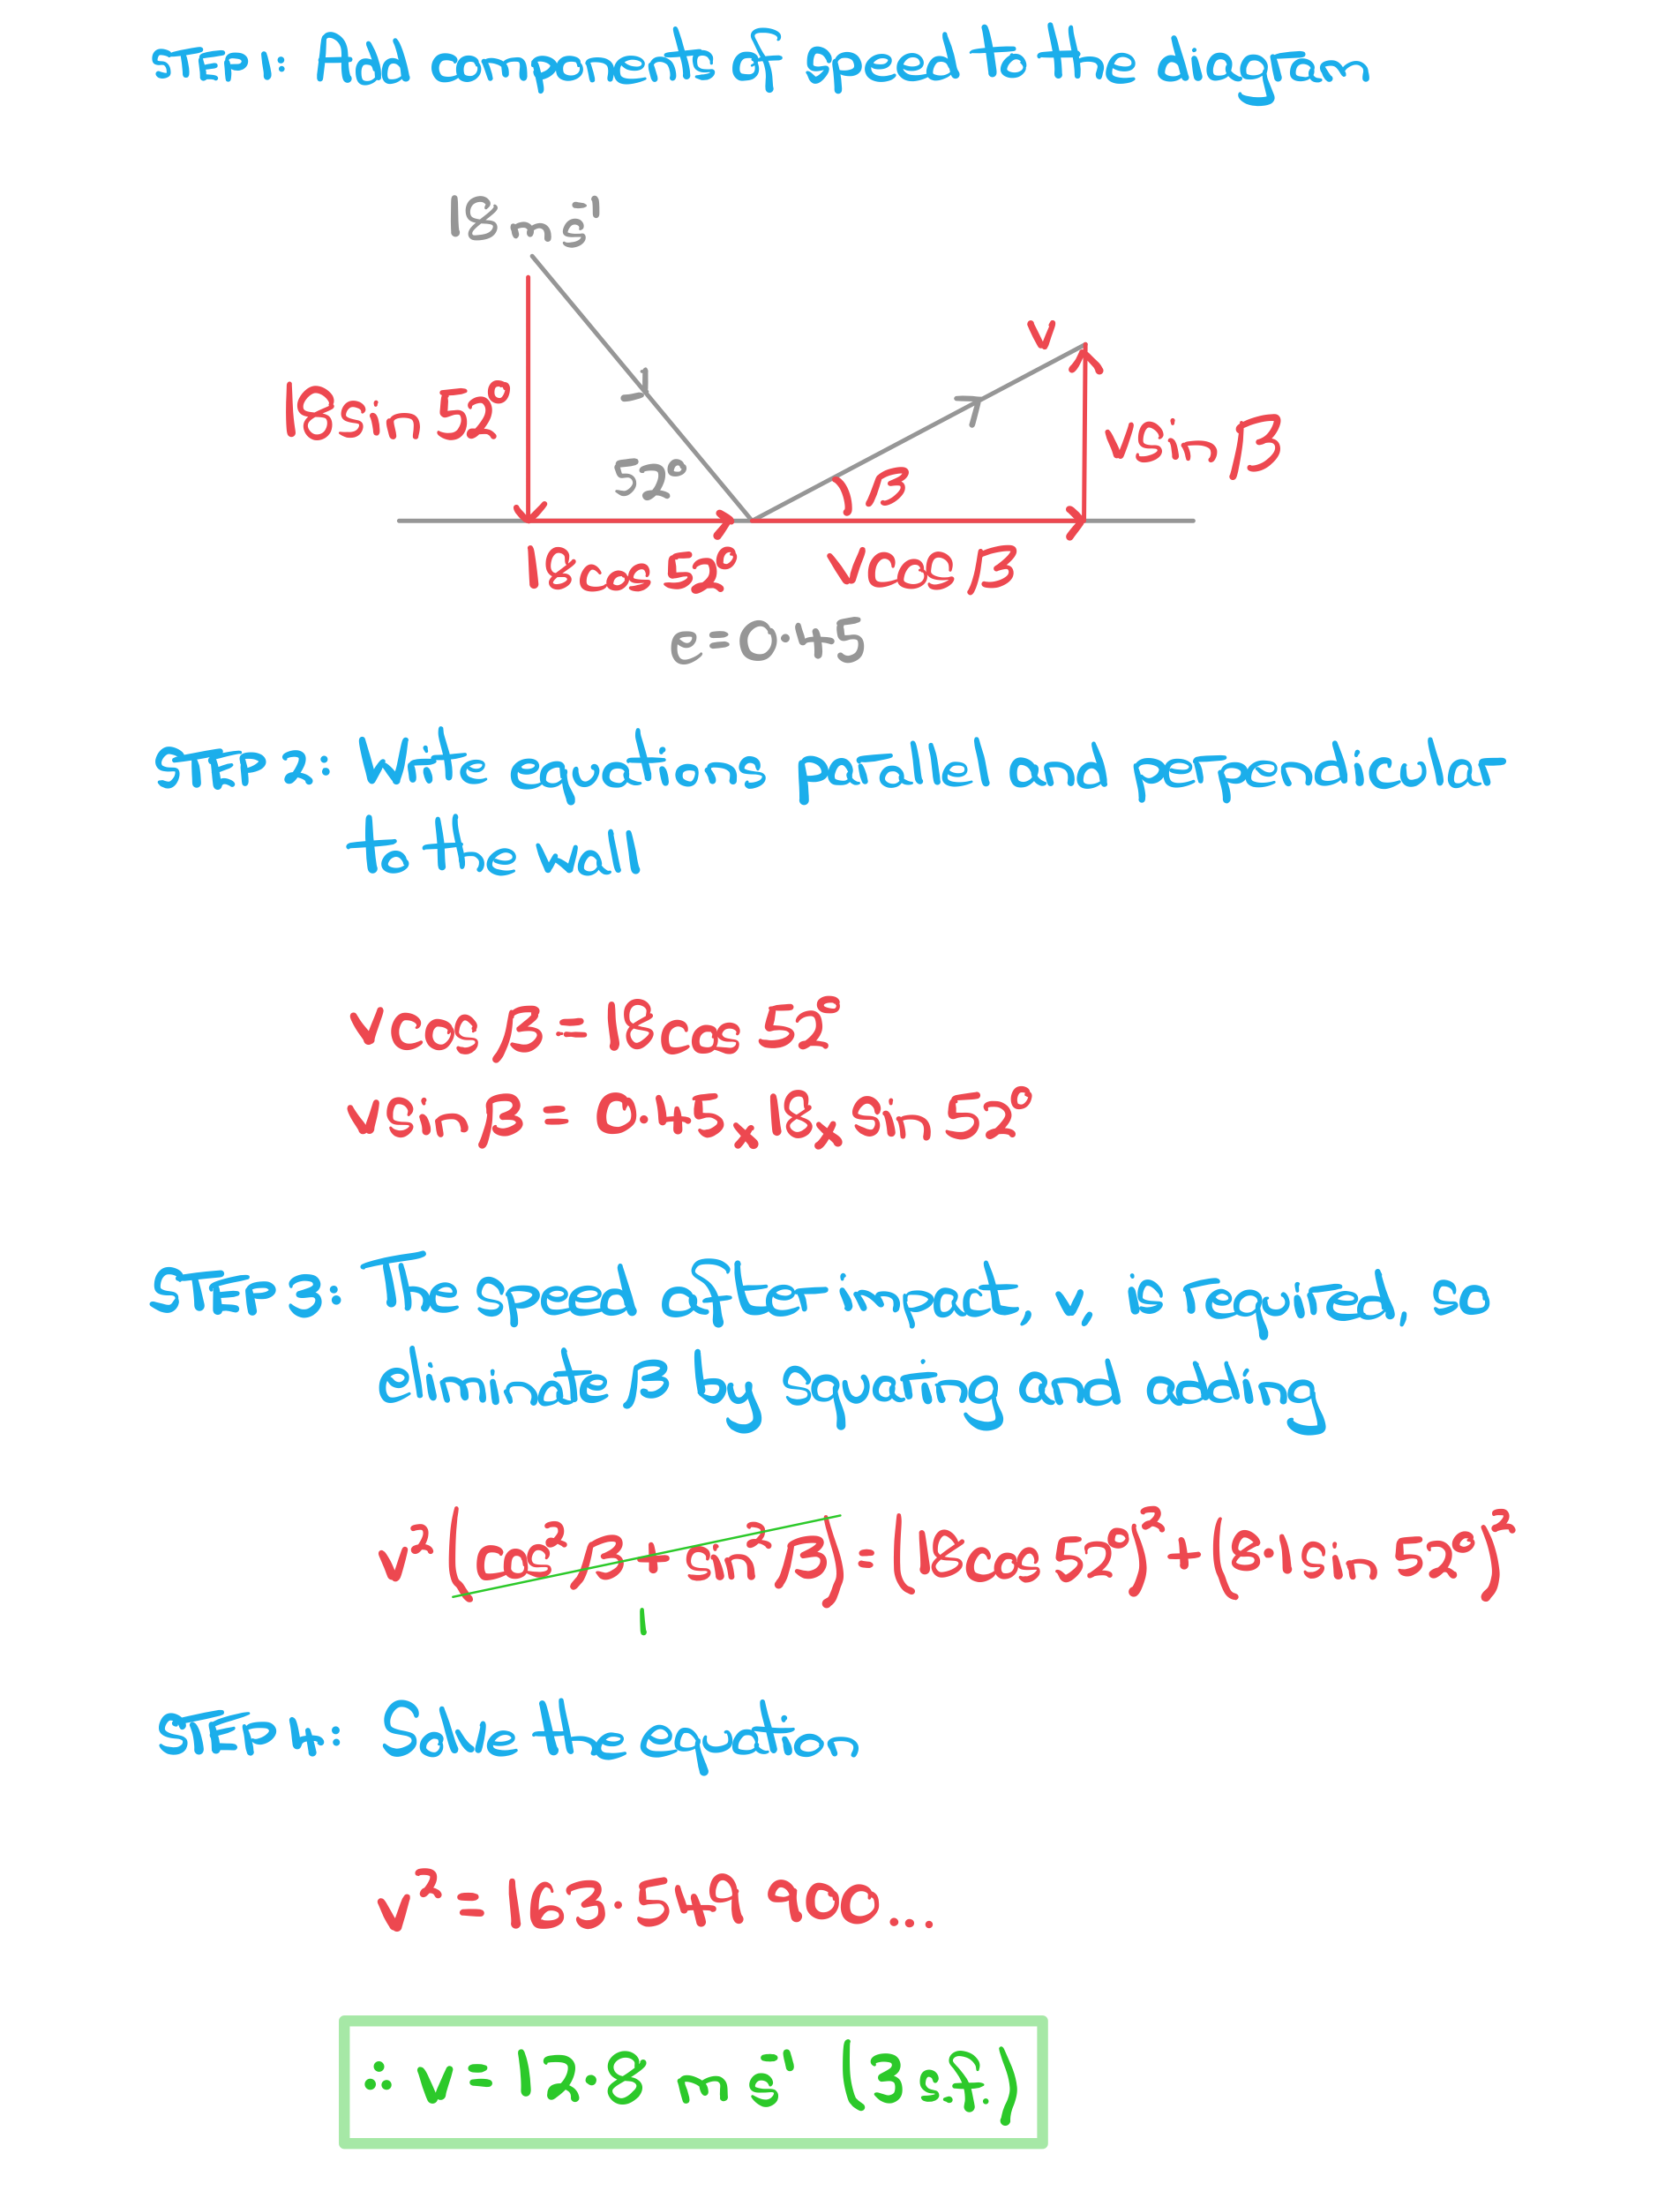 STEP 1: Add components of speed to the diagram
18 ms⁻¹
v
18sin 52°
52°
β
vsin β
18cos 52°
vcos β
e=0·45
STEP 2: Write equations parallel and perpendicular
to the wall
vcos β = 18cos 52°
vsin β = 0·45 × 18 × sin 52°
STEP 3: The speed after impact, v, is required, so
eliminate β by squaring and adding
v² (cos² β + sin² β) = (18cos 52°)² + (8·1sin 52°)²
1
STEP 4: Solve the equation
v² = 163·549 900...
∴ v = 12·8 ms⁻¹ (3 s.f.)